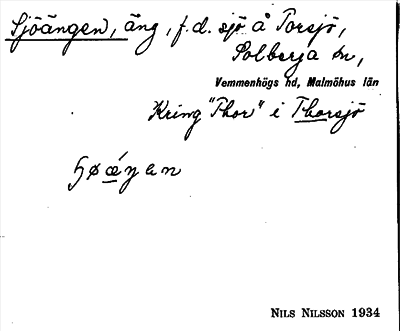 Sjöängen, äng, f.d. sjö å Torsjö,
Solberga sn,
Vemmenhögs hd, Malmöhus län
Kring "Thor" i Thorsjö
NILS NILSSON 1934